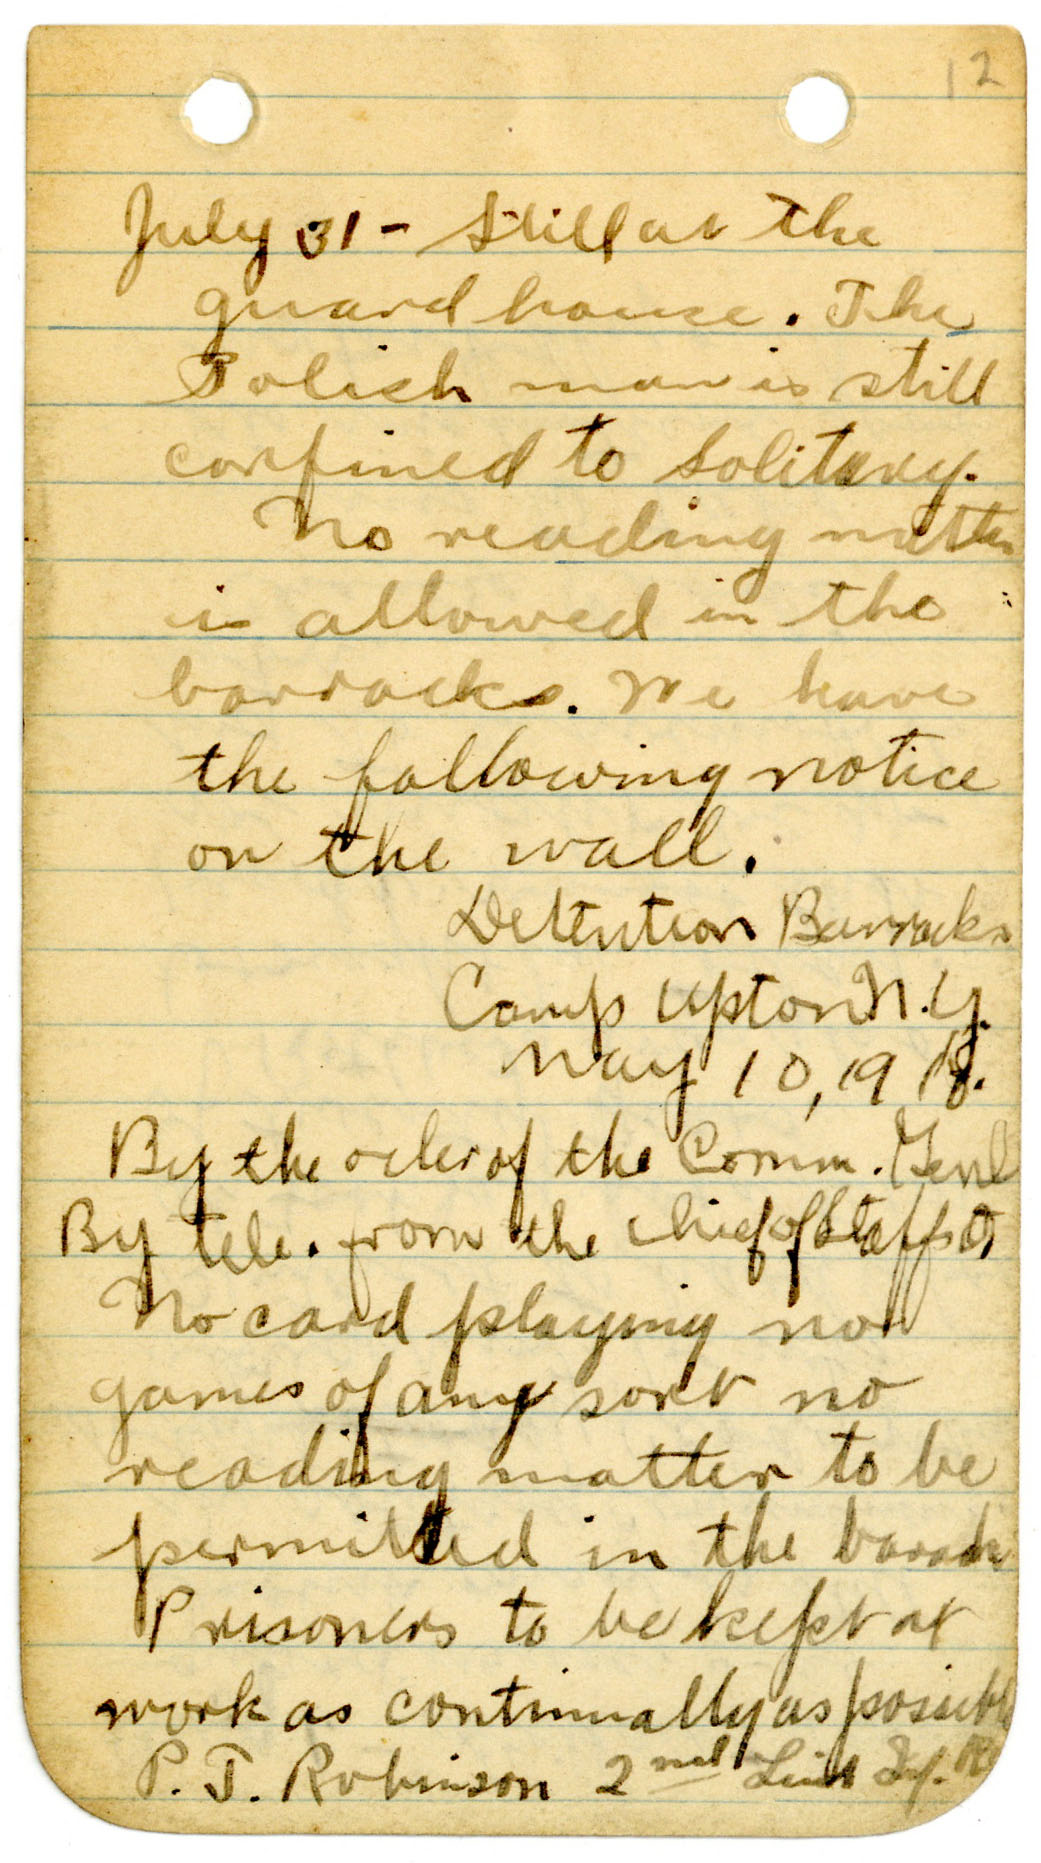 12
July 31 - Still at the
guard house. The
Polish man is still
confined to solitary.
No reading matter
is allowed in the
barracks. We have
the following notice
on the wall.
Detention Barracks
Camp Upton N.Y.
May 10, 1918.
By the order of the Comm. Genl
By tele. from the chief of staff
No card playing no
games of any sort no
reading matter to be
permitted in the
Prisoners to be kept at
work as continually as possible
P. J. Robinson 2nd Lieut